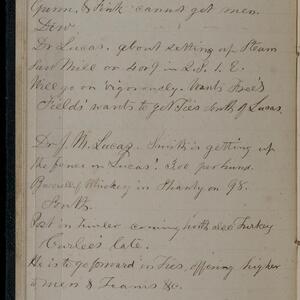 Gunn, & Pink cannot get men.
Dew
Dr Lucas. about setting up Steam
Saw Mill on 409 in 2. S. 1. E.
Will go on vigorously. Wants
Fields' wants to get Ties South of Lucas.
Dr J. M. Lucas. Smith is getting up
the fence on Lucas'. 300 per hund.
Barrel of Whiskey in Shanty on 98.
Post in timber coming north
late.
He is to go forward in Ties, offering higher
to men & Teams &c.